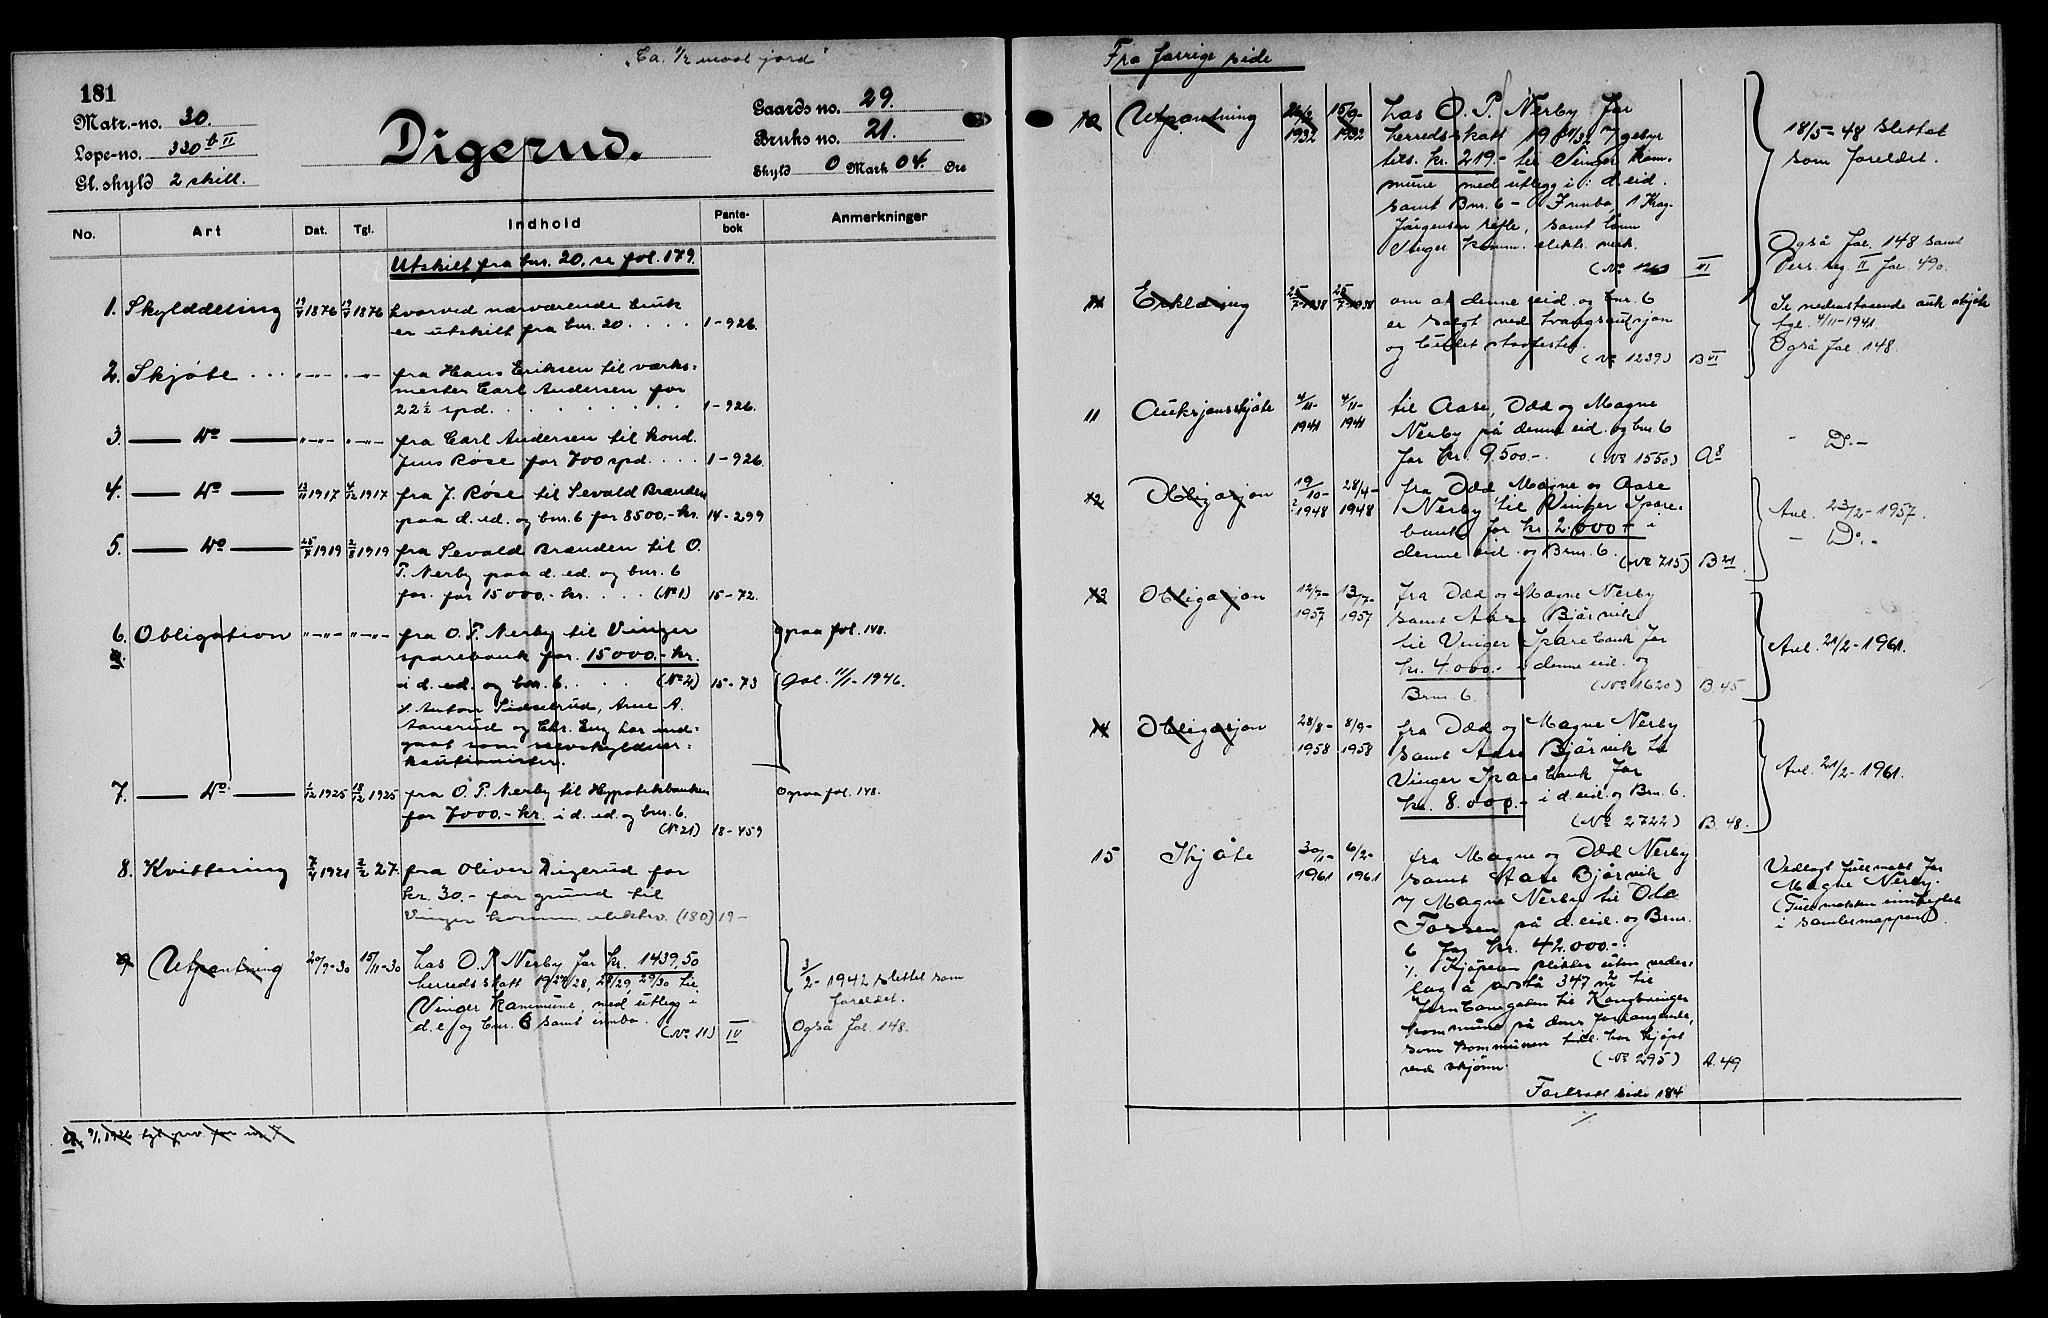 „Ca. 1/2 maal jord"
181
Matr.-no. 30.
Løpe-no. 330 b II
Gl. skyld 2 skill.
Digerud.
Gaards no. 29.
Bruks no. 21.
Skyld 0 Mark 04. Øre
No. Art Dat. Tgl. Indhold Pante-bok Anmerkninger
Utskilt fra bnr. 20, se fol. 179.
1. Skylddeling 1876 1876 hvorved nærværende bruk
er utskilt fra bnr. 20. . . . . 1-926.
2. Skjøte . . . "-"-" "-"-" fra Hans Eriksen til værks-
mester Carl Andersen for
22½ spd. . . . . . . . . . 1-926.
3. — Do — "-"-" "-"-" fra Carl Andersen til kond.
Jens Røse for 700 spd. . . . . 1-926.
4. — Do — 1917 1917 fra J. Røse til Sevald Branden
paa d. ed. og bnr. 6 for 8500,- kr. 14-299
5. — Do — 1919 1919 fra Sevald Branden til O.
P. Nerby paa d. ed. og bnr. 6
for 15000.- kr. . . . . (No 1) 15-72.
6. Obligation "-"-" "-"-" fra O. P. Nerby til Vinger
sparebank for 15000.- kr.
i d. ed. og bnr. 6. . . . . (No 2) 15-73
Ogpaa fol. 148.
Avl. 11/1-1946.
Anton Sidselrud, Arne A.
Aanerud og Chr. Eng har ind-
gaat som selvskyldner-
kautionister.
7. — Do — 1/12 1925 18/12 1925 fra O. P. Nerby til Hypotekbanken
for 7000.- kr. i d. ed. og bnr. 6.
(No 21) 18-459
Ogpaa fol. 148.
8. Kvittering 1921 2/2 27. fra Oliver Digerud for
kr. 30.- for grund til
Vinger komm. elektrv. (180) 19-
9 Utpantning 20/9-30 15/11-30 hos O. P. Nerby for kr. 1439,50
herredsskatt 1927/28, 28/29, 29/30 til
Vinger kommune, med utlegg i
d. e. og bnr. 6 samt innbo. (No 11) IV
3/2-1942 slettet som
foreldet.
Også fol. 148.
Fra forrige side
10 Utpantning 1932 15/9-1932 hos O. P. Nerby for
herredsskatt 1931/32 7 gebyr
tils. kr. 219.- til Vinger kom-
mune med utlegg i: d. eid.
samt Bnr. 6 - Innbo, 1 Krag-
Jørgensen rifle, samt lønn
Vinger komm. elektr. verk.
VI
18/5-48 slettet
som foreldet.
Også fol. 148 samt
Pers. reg. II fol. 490.
11 Erklæring 25/7-1938 25/7-1938 om at denne eid. og bnr. 6
er solgt ved tvangsauksjon
og budet stadfestet.
(No 1239) B VI
Se nedenstaaende auk. skjøte
tgl. 4/11-1941.
Også fol. 148.
11 Auksjonsskjøte 4/11-1941 4/11-1941 til Aase, Odd og Magne
Nerby på denne eid. og bnr. 6
for kr. 9.500.-. (No 1550) A 8
- Do. -
12 Obligasjon 19/10-1948 28/4-1948 fra Odd Magne og Aase
Nerby til Vinger Spare-
bank for kr. 2.000.- i
denne eid. og Bnr. 6. (No 715) B 21
Avl. 23/2-1957.
- Do. -
13 Obligasjon 12/7-1957 13/7-1957 fra Odd og Magne Nerby
samt Aase Bjørvik
til Vinger Sparebank for
kr. 4.000.- i denne eid. og
Bnr. 6. (No 1620) B. 45
Avl. 21/2-1961.
14 Obligasjon 28/8-1958 8/9-1958 fra Odd og Magne Nerby
samt Aase Bjørvik til
Vinger Sparebank for
kr. 8.000.- i d. eid. og Bnr. 6.
(No 2722) B. 48.
Avl. 21/2-1961.
15 Skjøte 30/1-1961 6/2-1961 fra Magne og Odd Nerby
samt Aase Bjørvik
v/ Magne Nerby til Ola
Forsen på d. eid. og Bnr.
6 for kr. 42.000.-.
./. Kjøperen plikter uten veder-
lag å avstå 347 m² til
Jernbanegaten til Kongsvinger
kommune på dens forlangende,
som kommunen tidl. har kjøpt
ved skjønn. (No 295) A. 49
Vedlagt fullmakt for
Magne Nerby.
(Fullmakten innheftet
i samlemappen).
Fortsatt side 184